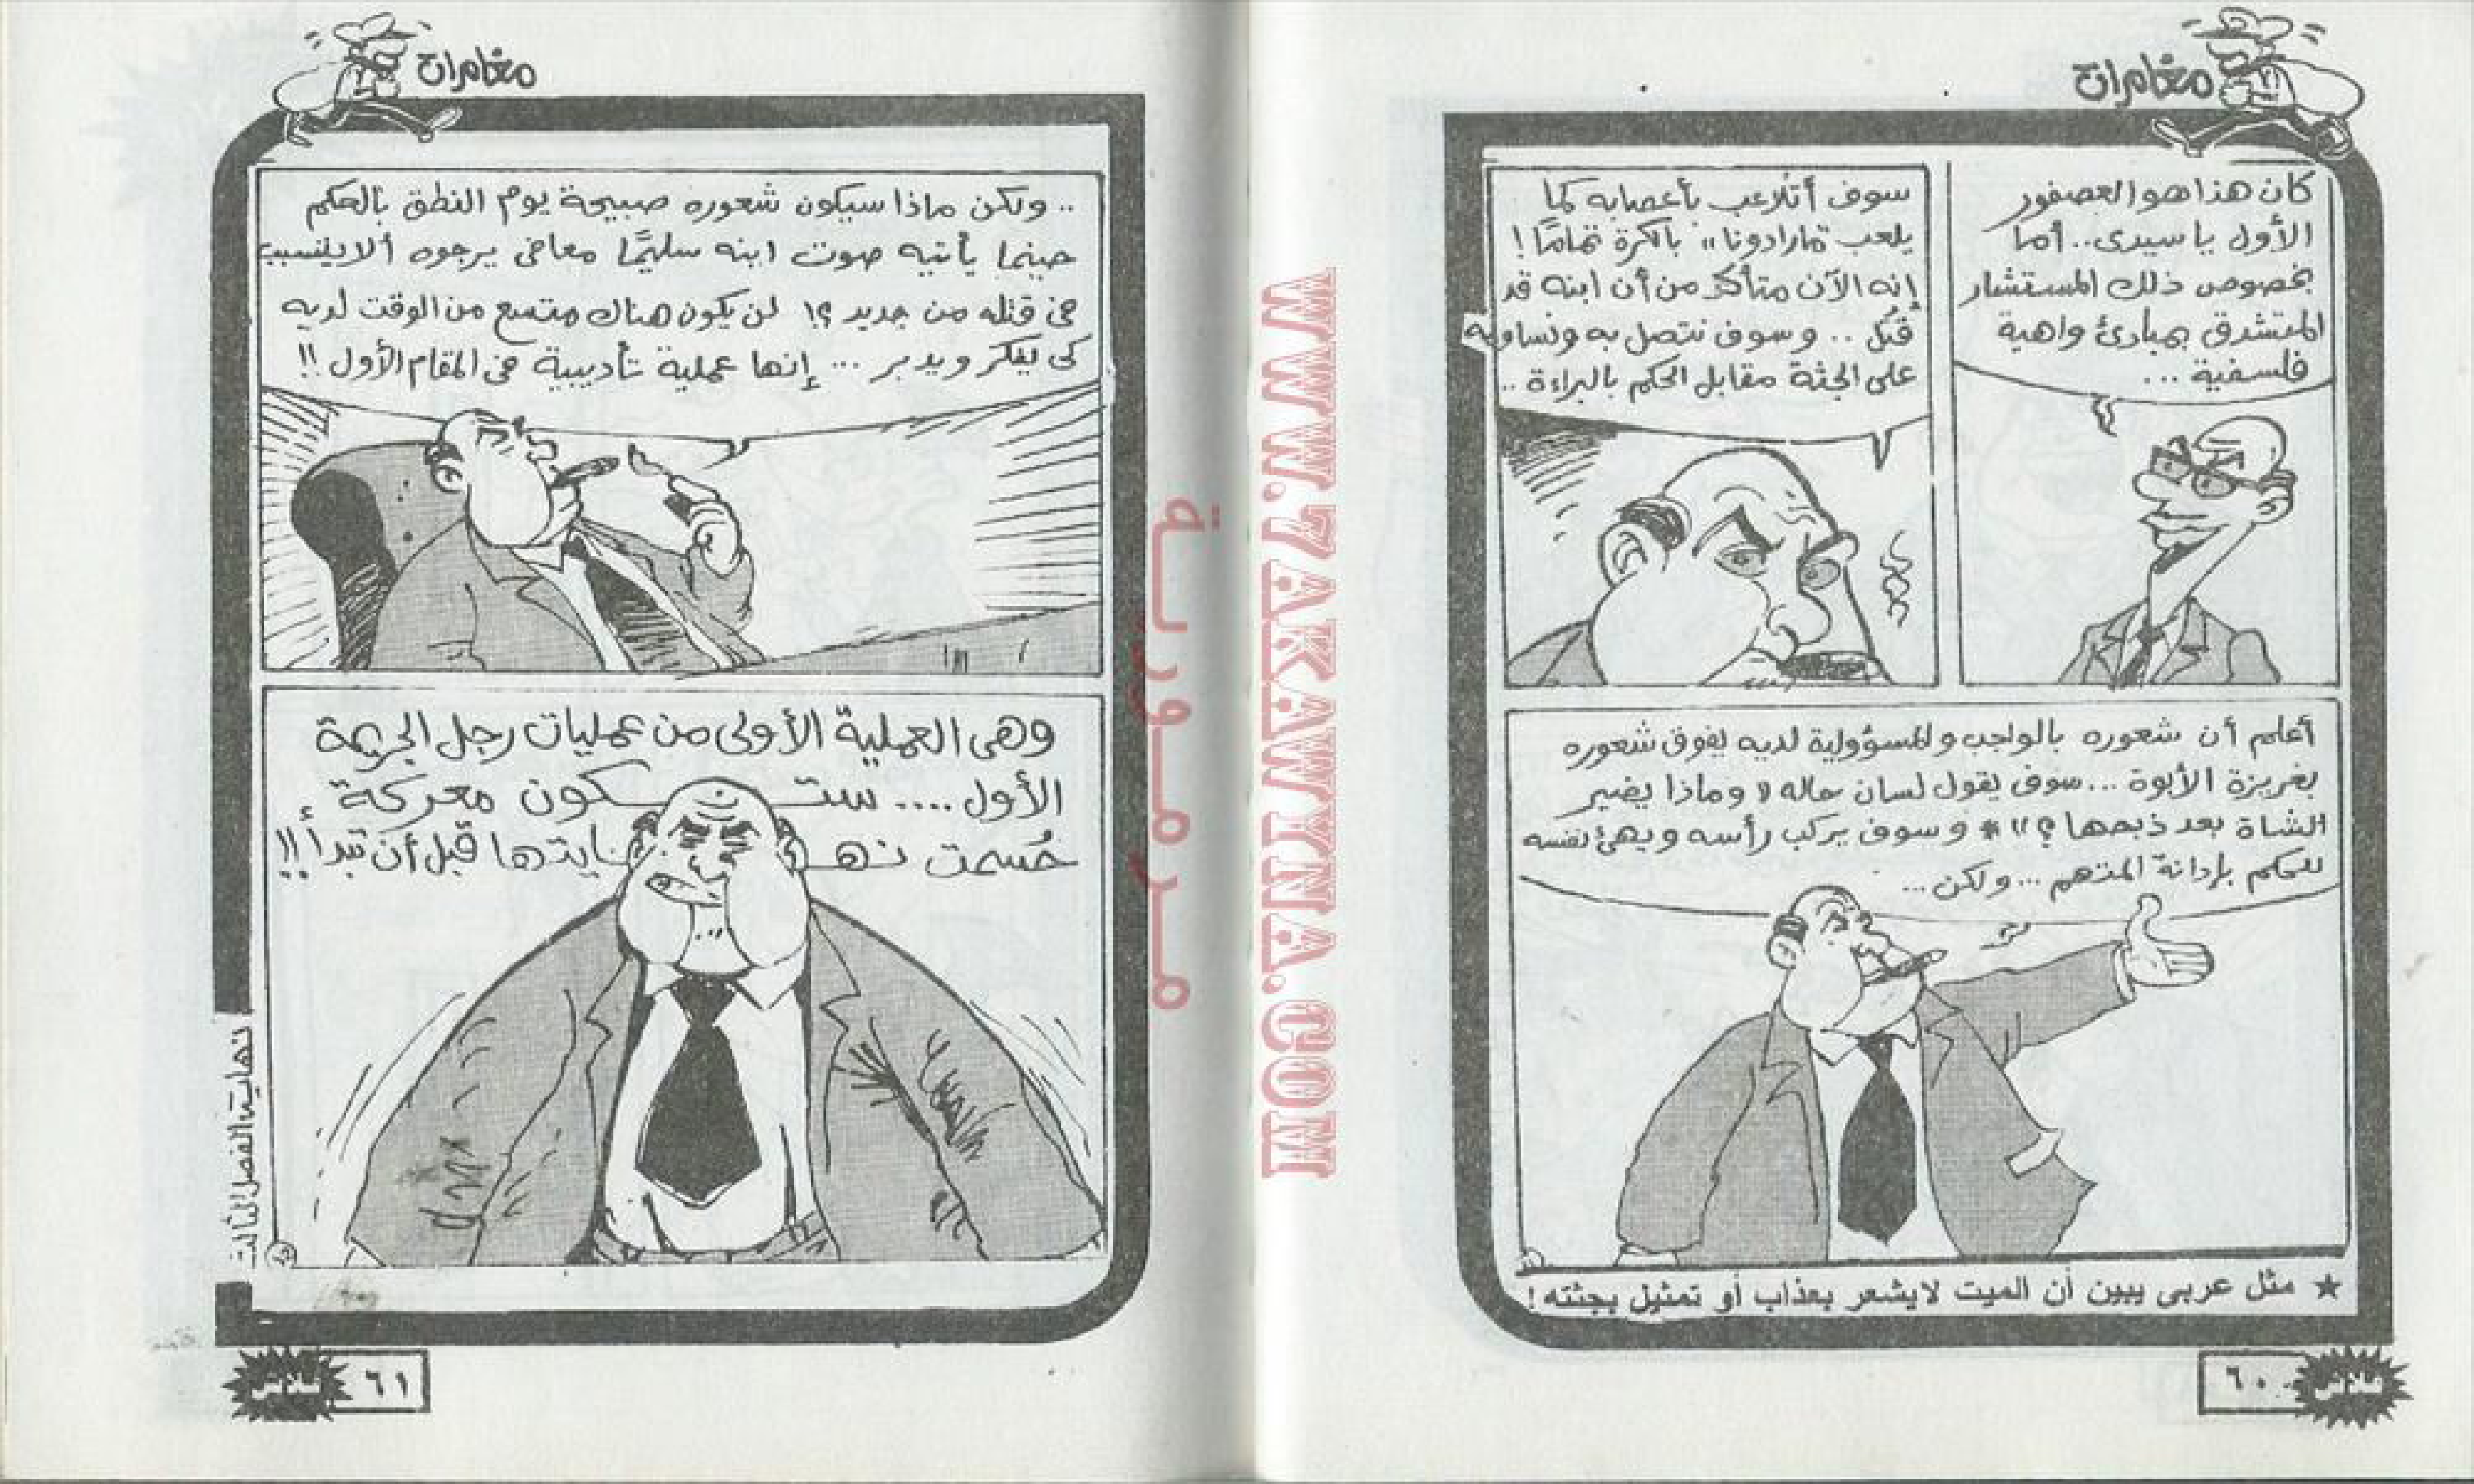 مغامرات
كان هذا هو العصفور
الأول يا سيدى.. أما
بخصوص ذلك المستشار
المتشدق بمبادئ واهية
فلسفية ...
سوف أتلاعب بأعصابه كما
يلعب "مارادونا" بالكرة تمامًا!
إنه الآن متأكد من أن ابنه قد
قُتل .. وسوف نتصل به ونساومه
على الجثة مقابل الحكم بالبراءة ..
أعلم أن شعوره بالواجب والمسؤولية لديه يفوق شعوره
بغريزة الأبوة ... سوف يقول لسان حاله « وماذا يضير
الشاة بعد ذبحها ؟ » * وسوف يركب رأسه ويهئ نفسه
للحكم بإدانة المتهم ... ولكن ...
★ مثل عربى يبين أن الميت لايشعر بعذاب أو تمثيل بجثته !
٦٠
مغامرات
.. ولكن ماذا سيكون شعوره صبيحة يوم النطق بالحكم
حينما يأتيه صوت ابنه سليمًا معافى يرجوه ألا يتسبب
فى قتله من جديد ؟! لن يكون هناك متسع من الوقت لديه
كى يفكر ويدبر ... إنها عملية تأديبية فى المقام الأول !!
وهى العملية الأولى من عمليات رجل الجريمة
الأول .... ستكون معركة
حُسمت نهايتها قبل أن تبدأ !!
نهاية الفصل الثالث
٦١
WWW.7AKAWINA.COM
مرمورية